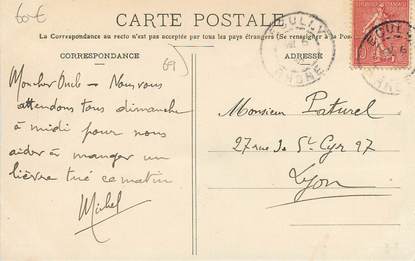 60€
CARTE POSTALE
La Correspondance au recto n'est pas acceptée par tous les pays étrangers (Se renseigner à la Poste)
CORRESPONDANCE
69
ADRESSE
ECULLY
RHÔNE
Mon cher Oncle — Nous vous
attendons tous dimanche
à midi pour nous
aider à manger un
lièvre tué ce matin
Michel
Monsieur Paturel
27 rue de St Cyr 97
Lyon